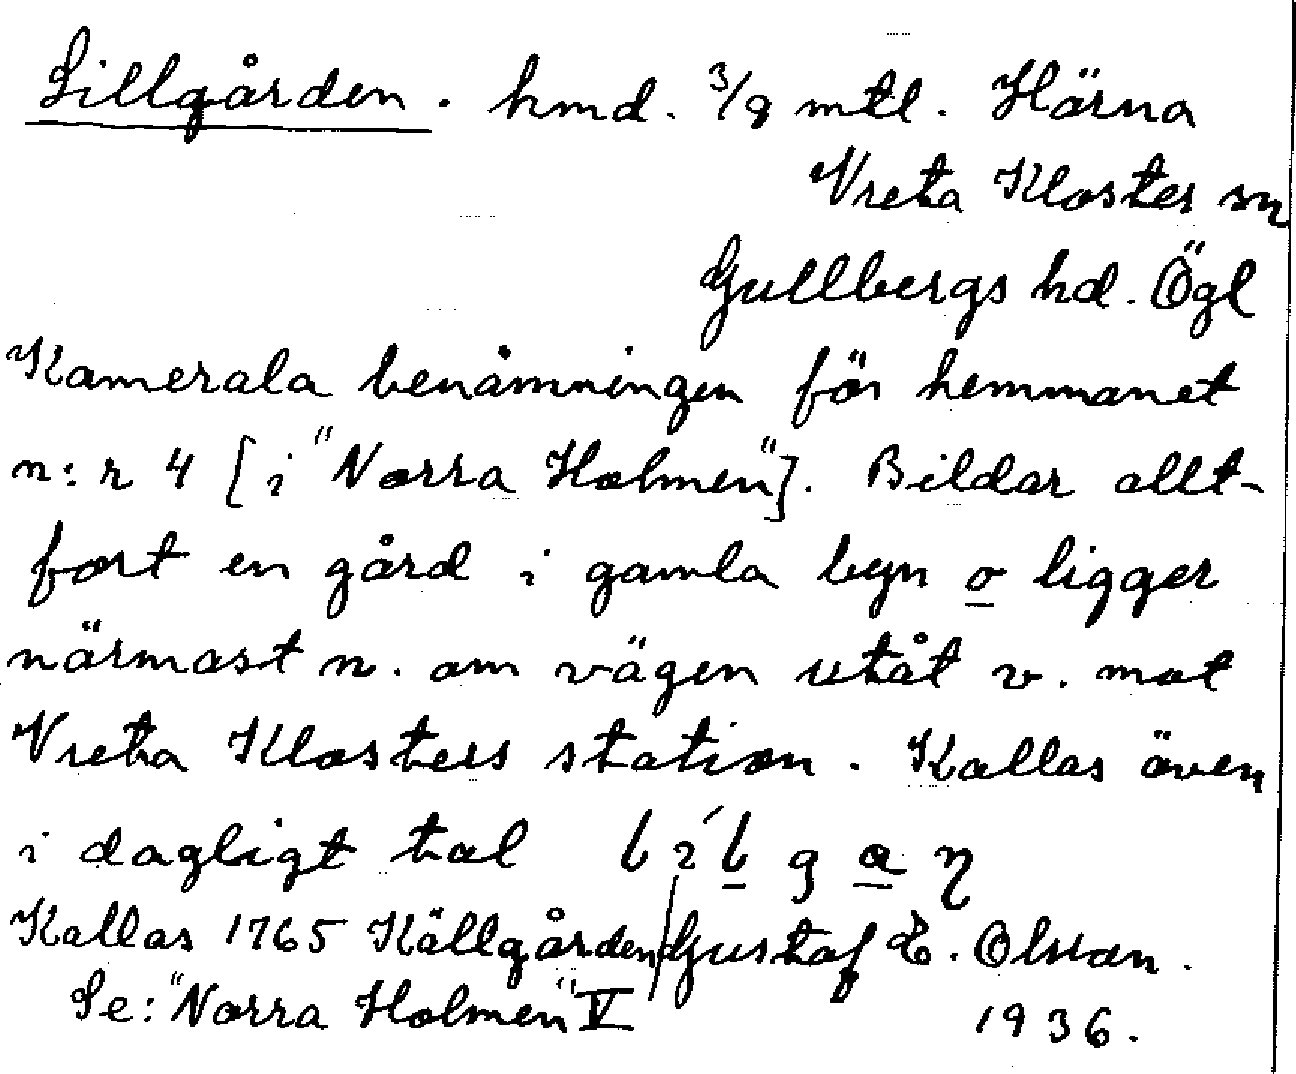 Lillgården. hmd. 3/8 mtl. Härna
Vreta Kloster sn
Gullbergs hd. Ögl
Kamerala benämningen för hemmanet
n:r 4 [i "Norra Holmen"]. Bildar allt-
fort en gård i gamla byn o ligger
närmast n. om vägen utåt v. mot
Vreta Klosters station. Kallas även
i dagligt tal
Kallas 1765 Källgården / Gustaf E. Olsson.
Se: "Norra Holmen" V
1936.